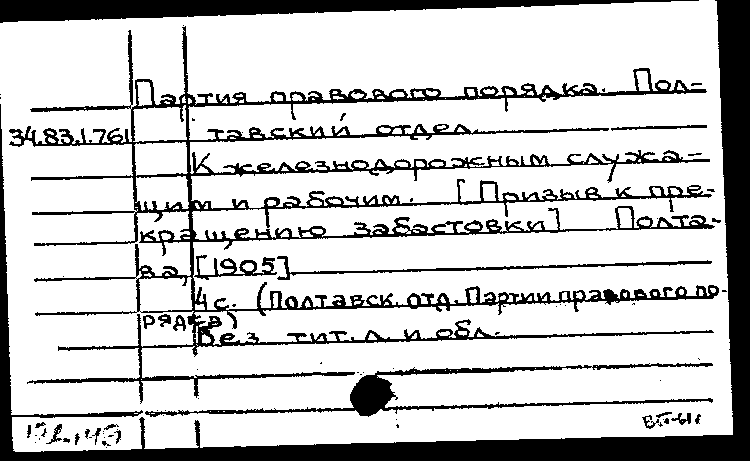 Партия правового порядка. Пол-
34.83.1.761 тавский отдел.
К железнодорожным служа-
щим и рабочим. [Призыв к пре-
кращению забастовки] Полта-
ва, [1905].
4 с. (Полтавск. отд. Партии правового по-
рядка)
Без тит. л. и обл.